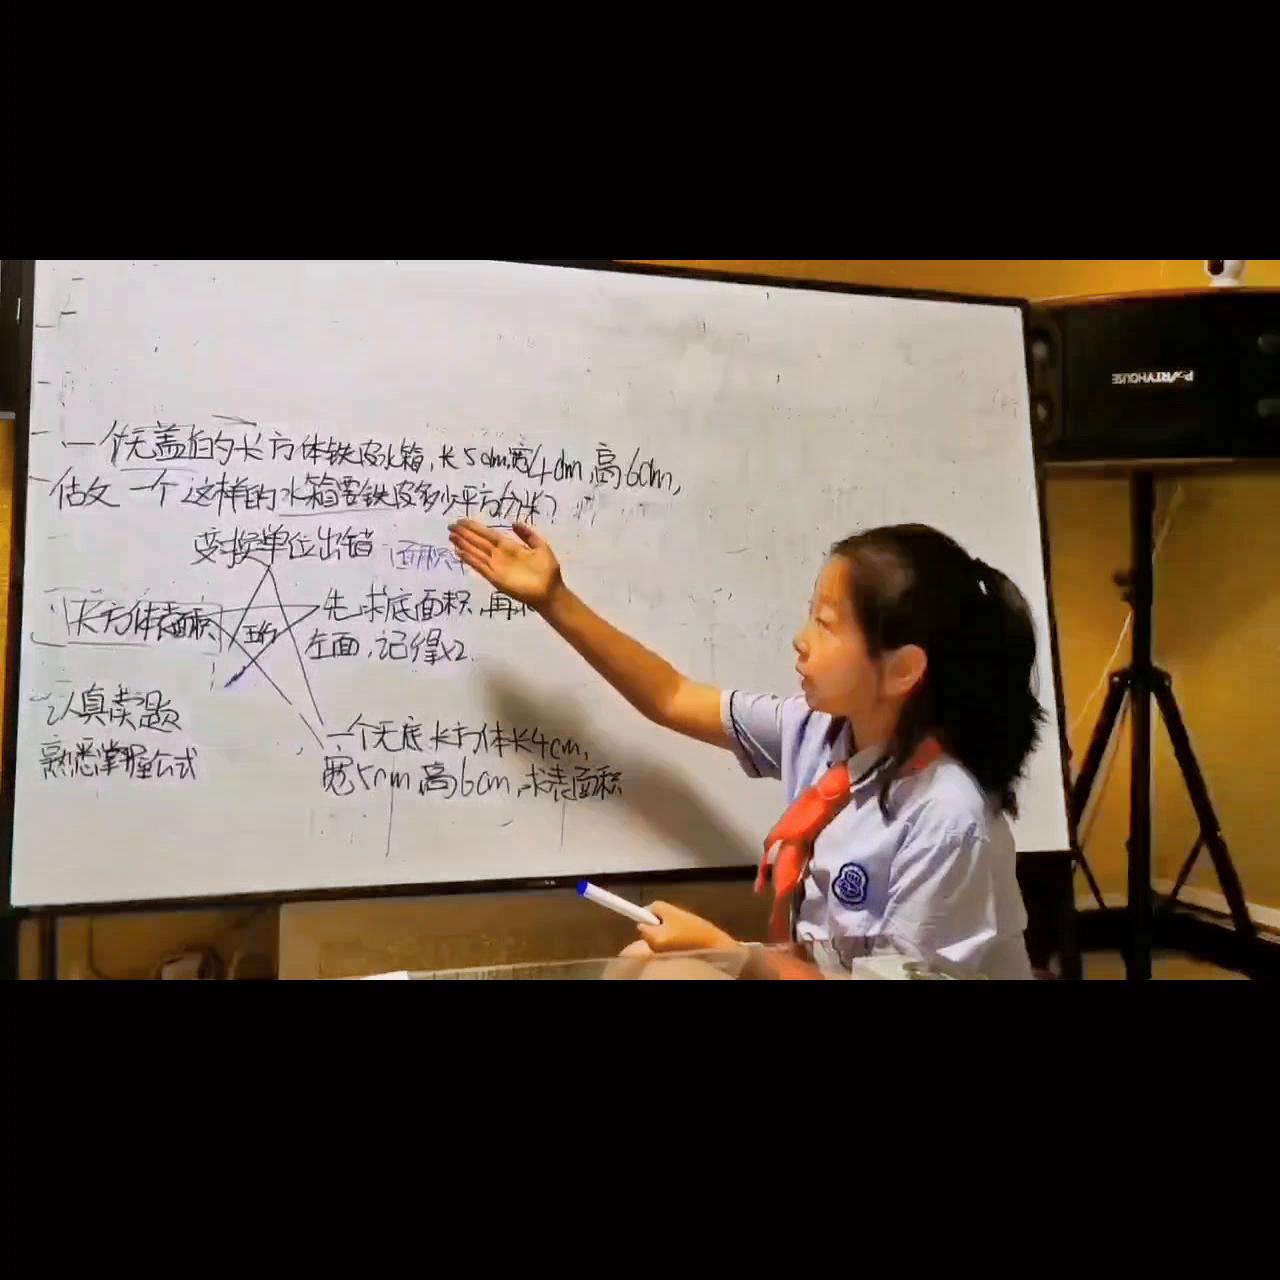 一个无盖的长方体铁皮水箱,长5cm,宽4cm,高6cm,
估文一个这样的水箱需铁皮多少平方分米?
变换单位出错
面积单
长方体表面积
五角
先求底面积,再求
左面,记得x2.
认真读题
熟悉掌握公式
一个无底长方体长4cm,
宽5cm,高6cm,求表面积
PARTYHOUSE